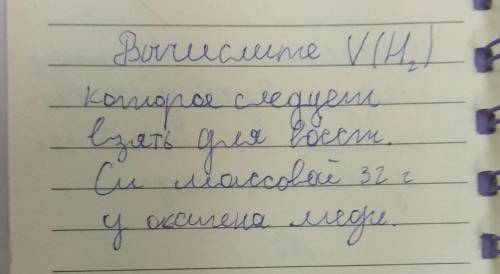 Вычислите V(H₂)
которое следует
взять для восст.
Cu массовой 32 г
у оксигена меди.